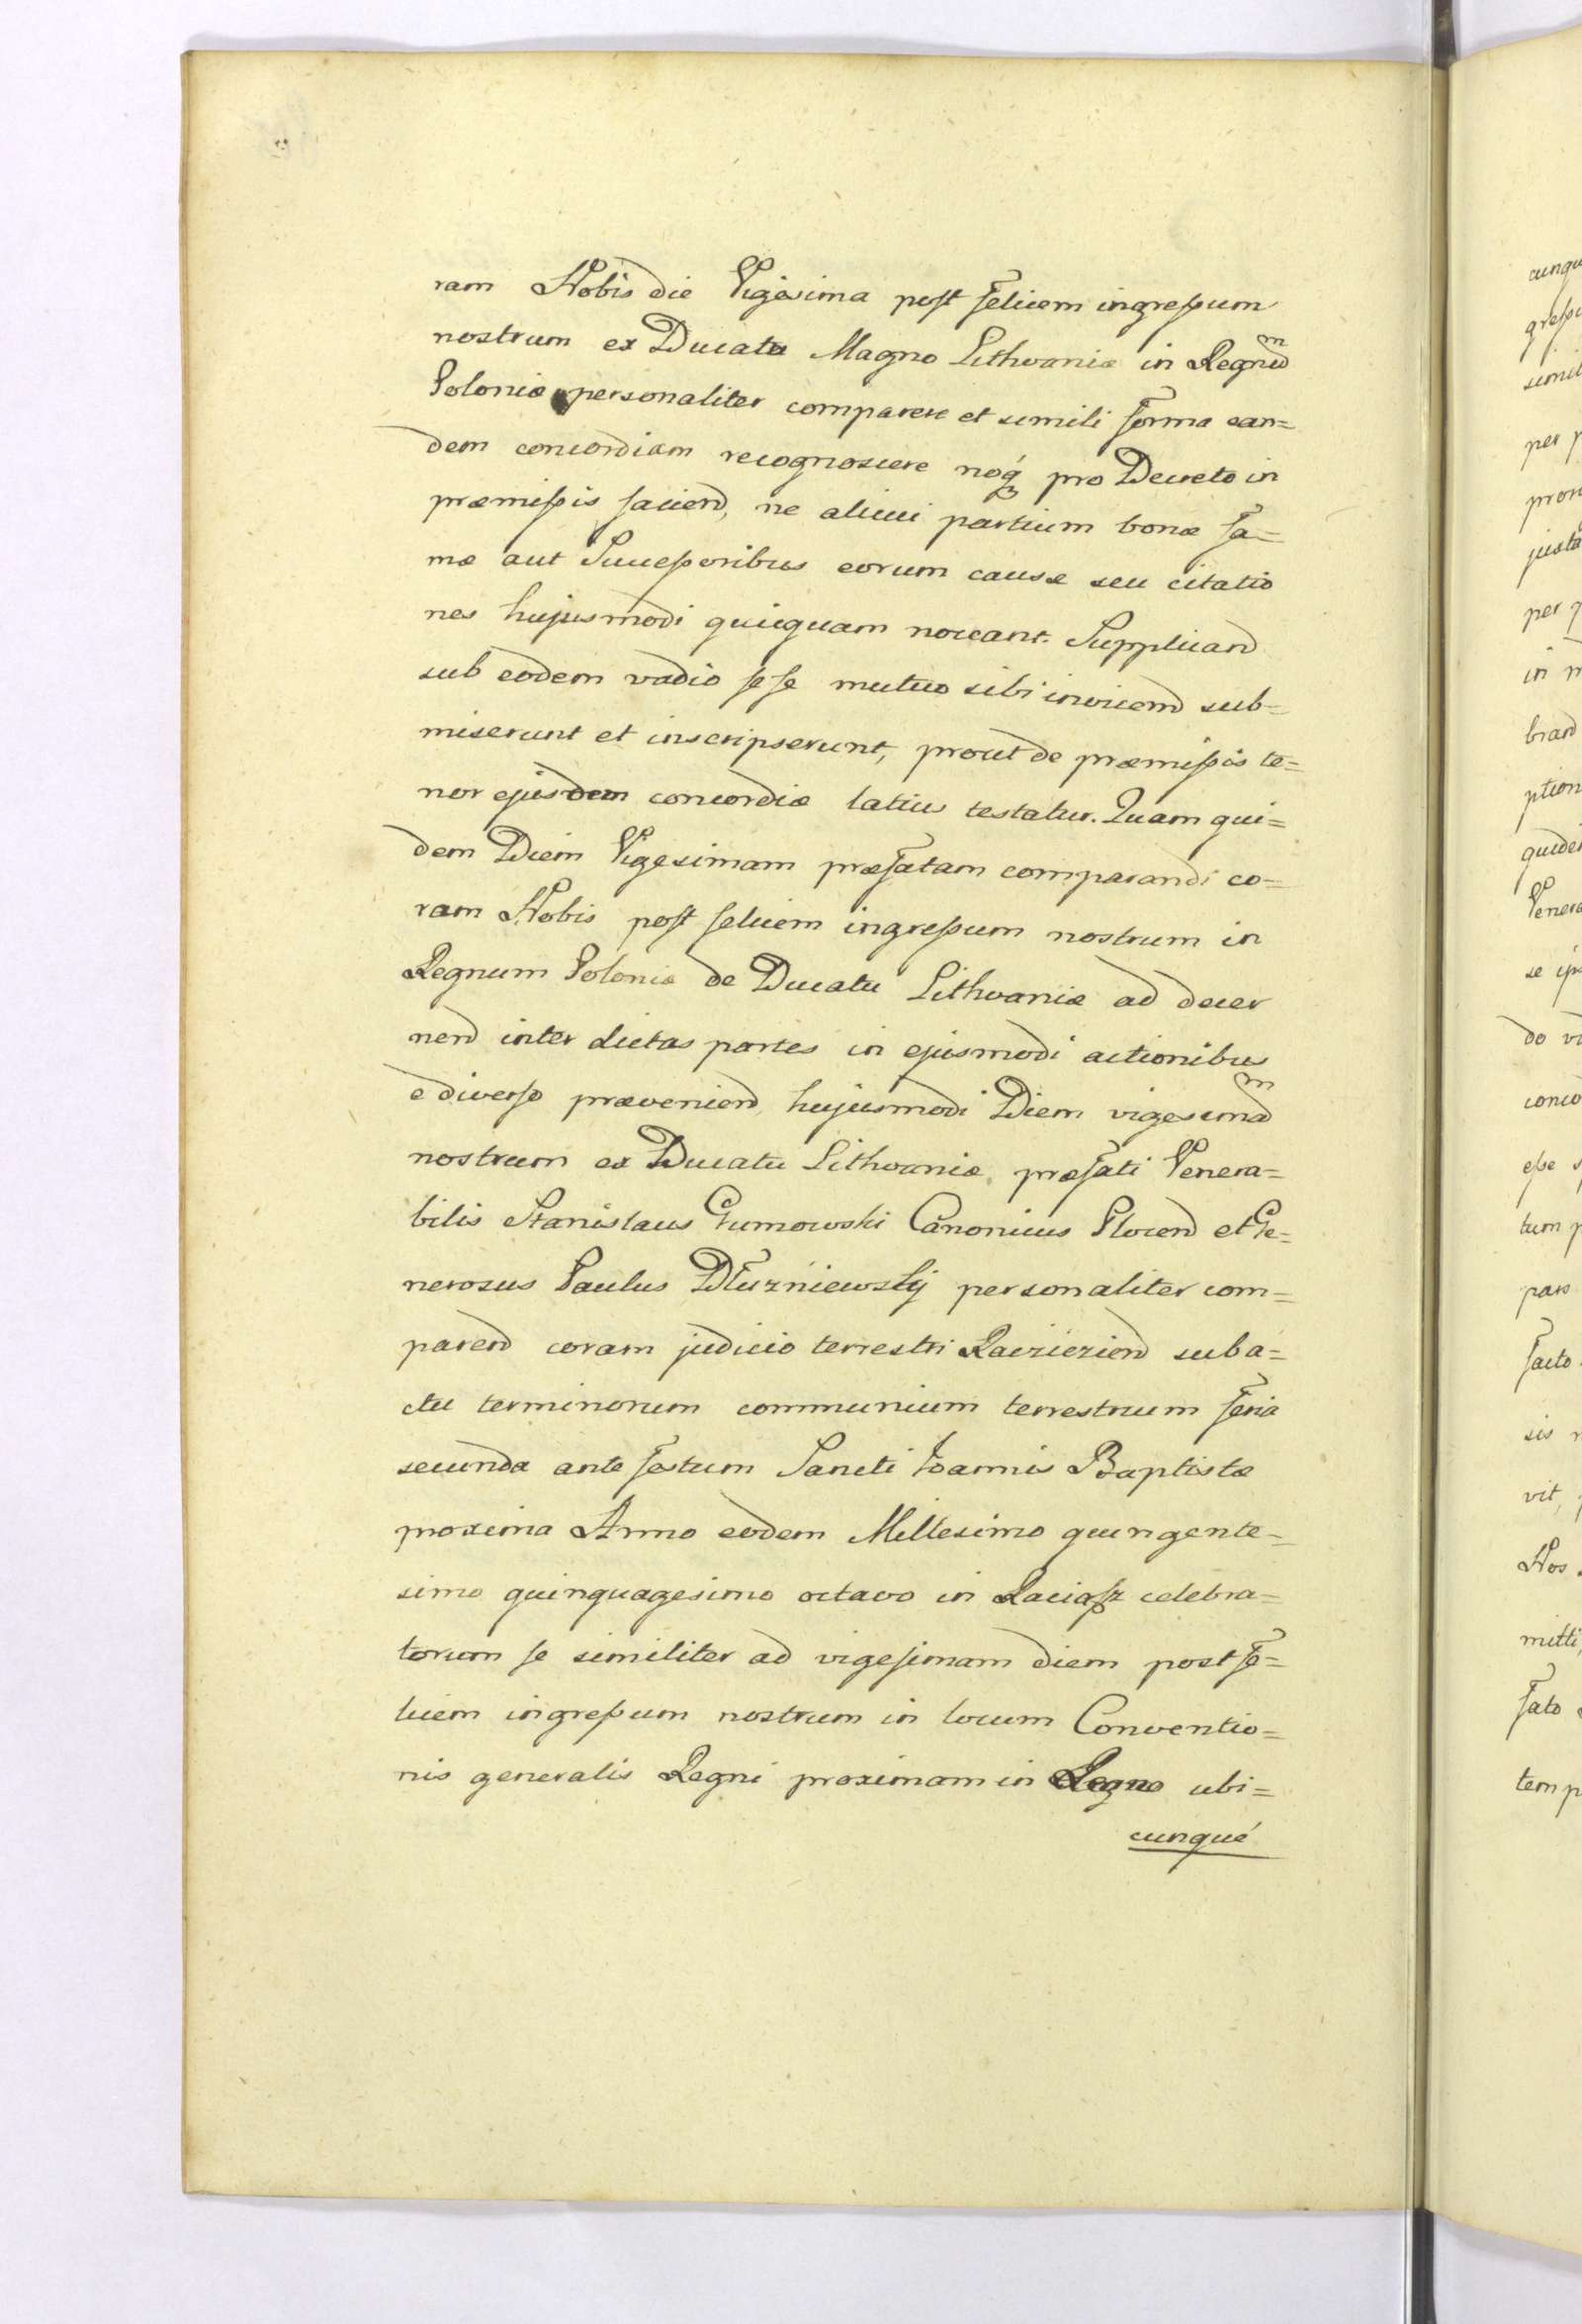 ram Nobis die Vigesima post felicem ingressum
nostrum ex Ducatu Magno Lithvaniæ in Regnũ
Poloniæ personaliter comparere et simili forma ean=
dem concordiam recognoscere nosq́ pro Decreto in
præmissis faciend, ne alicui partium bonæ fa=
mæ aut Successoribus eorum causæ seu citatio
nes hujusmodi quicquam noceant. Supplicand
sub eodem vadio sese mutuo sibi invicem sub=
miserunt et inscripserunt, prout de præmissis te=
nor ejusdem concordiæ latius testatur. Quam qui=
dem Diem Vigesimam præfatam comparandi co=
ram Nobis post felicem ingressum nostrum in
Regnum Poloniæ de Ducatu Lithvaniæ ad decer
nend inter dictas partes in ejusmodi actionibus
e diverso præveniend hujusmodi Diem vigesimã
nostrum ex Ducatu Lithvaniæ, præfati Venera=
bilis Stanislaus Gumowski Canonicus Plocend et Ge=
nerosus Paulus Dłużniewskij personaliter com=
parend coram judicio terrestri Raczieziend sub a=
ctu terminorum communium terrestrium feria
secunda ante festum Sancti Joannis Baptistæ
proxima Anno eodem Millesimo quingente=
simo quinquagesimo octavo in Raciąsz celebra=
torum se similiter ad vigesimam diem post fe=
licem ingressum nostrum in locum Conventio=
nis generalis Regni proximam in Regno ubi=
cunqué
cunqu
gressu
simil
per p
pron
justa
per q
in m
brand
ption
quider
Venera
se ips
do va
conco
esse s
tum p
pars
facto
sis n
vit,
Nos
mitti
fato
temp